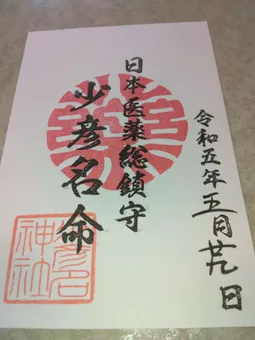 令和五年五月廿九日
日本医薬総鎮守
少彦名命
少彦名
神社